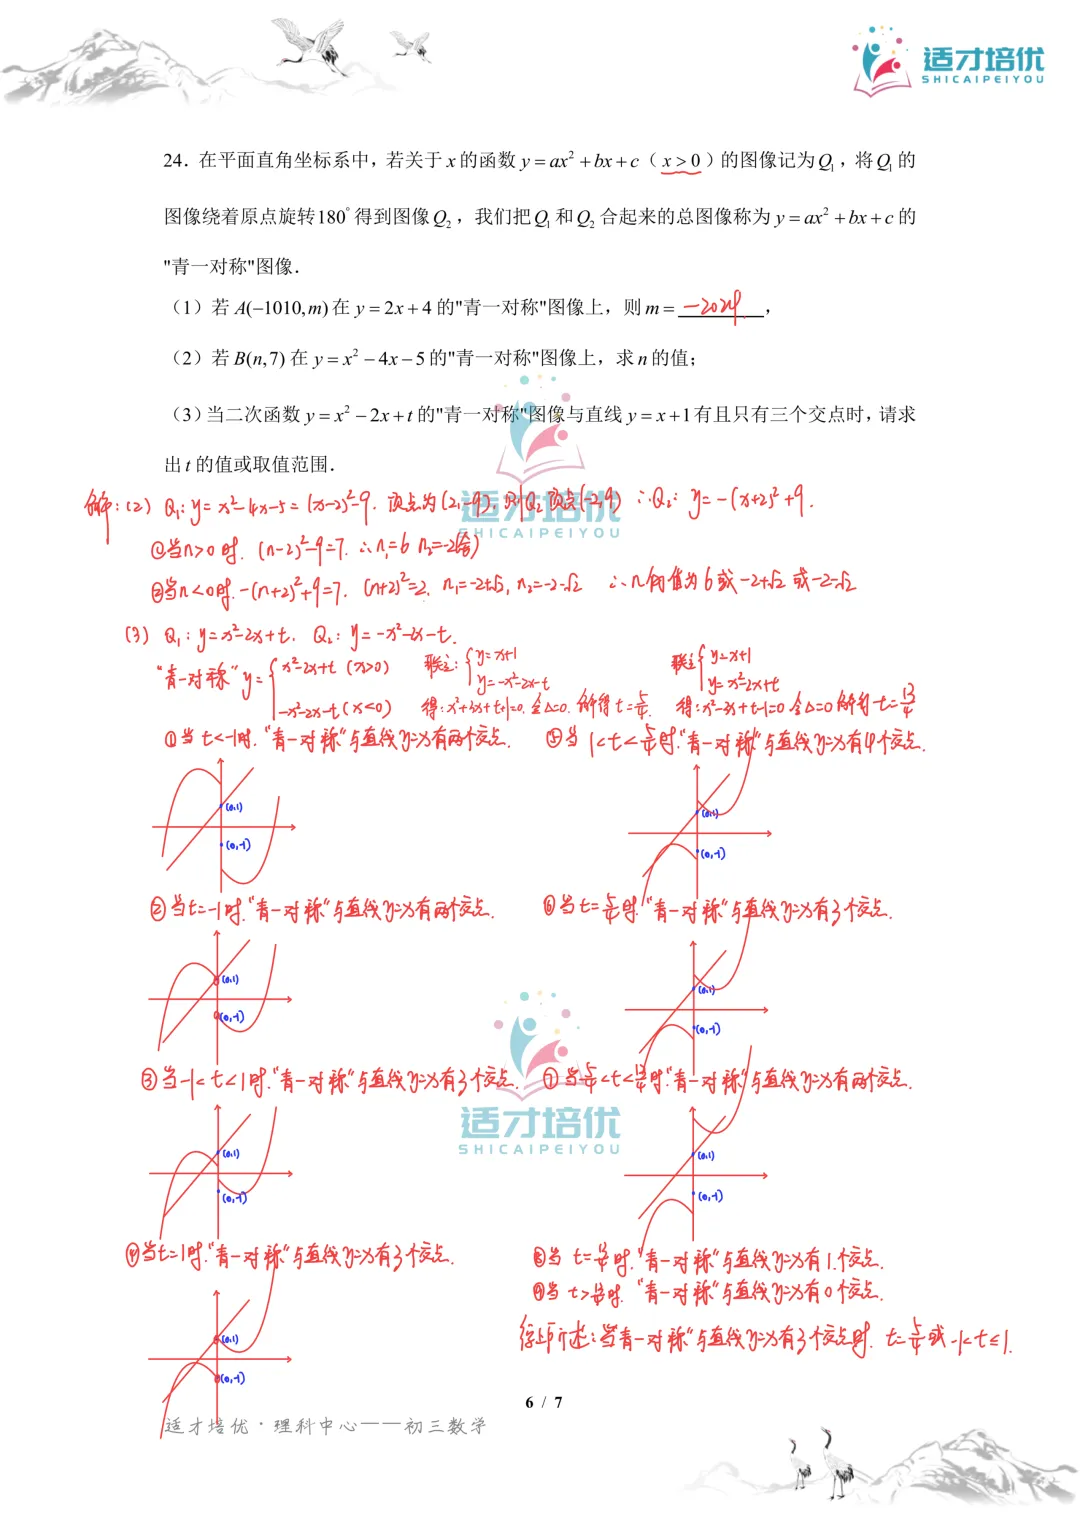 适才培优
SHICAIPEIYOU
24. 在平面直角坐标系中，若关于x的函数y=ax²+bx+c（x>0）的图像记为Q₁，将Q₁的
图像绕着原点旋转180°得到图像Q₂，我们把Q₁和Q₂合起来的总图像称为y=ax²+bx+c的
"青一对称"图像.
（1）若A(−1010,m)在y=2x+4的"青一对称"图像上，则m= -2024.，
（2）若B(n,7)在y=x²−4x−5的"青一对称"图像上，求n的值；
（3）当二次函数y=x²−2x+t的"青一对称"图像与直线y=x+1有且只有三个交点时，请求
出t的值或取值范围.
适才培优
SHICAIPEIYOU
解：(2) Q₁: y=x²-4x-5=(x-2)²-9. 顶点为(2,-9), 则Q₂顶点(-2,9) ∴Q₂: y=-(x+2)²+9.
①当n>0时. (n-2)²-9=7. ∴n₁=6 n₂=-2(舍)
②当n<0时. -(n+2)²+9=7. (n+2)²=2. n₁=-2+√2, n₂=-2-√2 ∴n的值为6或-2+√2或-2-√2
(3) Q₁: y=x²-2x+t. Q₂: y=-x²-2x-t.
"青一对称" y={ x²-2x+t (x>0)
-x²-2x-t (x<0)
联立：{ y=x+1
y=-x²-2x-t
得：x²+3x+t+1=0. 令Δ=0. 解得t=5/4.
联立{ y=x+1
y=x²-2x+t
得：x²-3x+t-1=0 令Δ=0 解得t=13/4
①当t<-1时. "青一对称"与直线y=x有两个交点.
(0,1)
(0,-1)
②当t=-1时. "青一对称"与直线y=x有两个交点.
(0,1)
(0,-1)
③当-1<t<1时. "青一对称"与直线y=x有3个交点.
(0,1)
(0,-1)
④当t=1时. "青一对称"与直线y=x有3个交点.
(0,1)
(0,-1)
⑤当1<t<5/4时. "青一对称"与直线y=x有4个交点.
(0,1)
(0,-1)
⑥当t=5/4时. "青一对称"与直线y=x有3个交点.
(0,1)
(0,-1)
⑦当5/4<t<13/4时. "青一对称"与直线y=x有两个交点.
(0,1)
(0,-1)
⑧当t=13/4时. "青一对称"与直线y=x有1个交点.
⑨当t>13/4时. "青一对称"与直线y=x有0个交点.
综上所述：当"青一对称"与直线y=x有3个交点时. t=5/4或-1<t≤1.
适才培优
SHICAIPEIYOU
6 / 7
适才培优·理科中心——初三数学